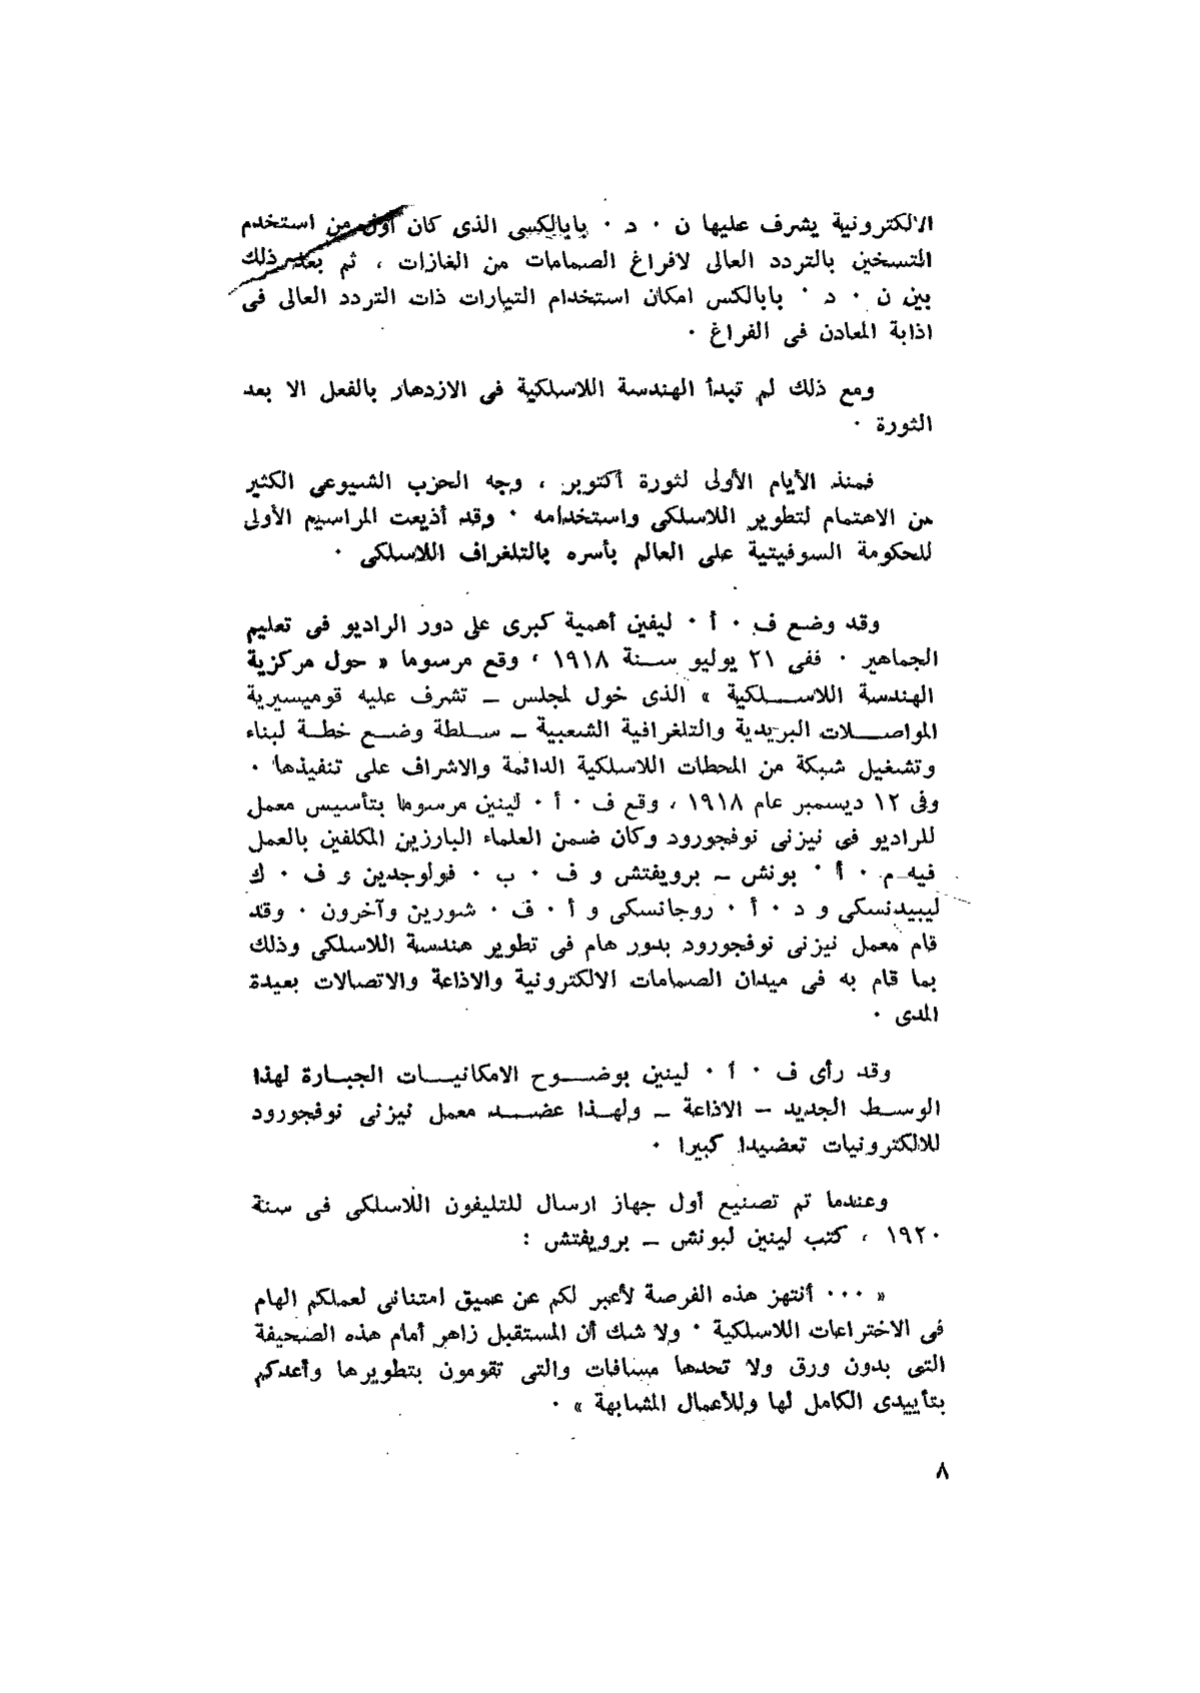 الالكترونية يشرف عليها ن ٠ د ٠ بابالكسى الذى كان أول من استخدم
التسخين بالتردد العالى لافراغ الصمامات من الغازات ، ثم بعد ذلك
بين ن ٠ د ٠ بابالكس امكان استخدام التيارات ذات التردد العالى فى
اذابة المعادن فى الفراغ ٠
ومع ذلك لم تبدأ الهندسة اللاسلكية فى الازدهار بالفعل الا بعد
الثورة ٠
فمنذ الأيام الأولى لثورة أكتوبر ، وجه الحزب الشيوعى الكثير
من الاهتمام لتطوير اللاسلكى واستخدامه ٠ وقد أذيعت المراسيم الأولى
للحكومة السوفيتية على العالم بأسره بالتلغراف اللاسلكى ٠
وقد وضع ف ٠ أ ٠ ليفين أهمية كبرى على دور الراديو فى تعليم
الجماهير ٠ ففى ٢١ يوليو سنة ١٩١٨ ، وقع مرسوما « حول مركزية
الهندسة اللاسلكية » الذى خول لمجلس – تشرف عليه قوميسيرية
المواصلات البريدية والتلغرافية الشعبية – سلطة وضع خطة لبناء
وتشغيل شبكة من المحطات اللاسلكية الدائمة والاشراف على تنفيذها ٠
وفى ١٢ ديسمبر عام ١٩١٨ ، وقع ف ٠ أ ٠ لينين مرسوما بتأسيس معمل
للراديو فى نيزنى نوفجورود وكان ضمن العلماء البارزين المكلفين بالعمل
فيه م ٠ أ ٠ بونش – برويفتش و ف ٠ ب ٠ فولوجدين و ف ٠ ك
ليبيدنسكى و د ٠ أ ٠ روجانسكى و أ ٠ ف ٠ شورين وآخرون ٠ وقد
قام معمل نيزنى نوفجورود بدور هام فى تطوير هندسة اللاسلكى وذلك
بما قام به فى ميدان الصمامات الالكترونية والاذاعة والاتصالات بعيدة
المدى ٠
وقد رأى ف ٠ أ ٠ لينين بوضوح الامكانيات الجبارة لهذا
الوسط الجديد – الاذاعة – ولهذا عضد معمل نيزنى نوفجورود
للالكترونيات تعضيدا كبيرا ٠
وعندما تم تصنيع أول جهاز ارسال للتليفون اللاسلكى فى سنة
١٩٢٠ ، كتب لينين لبونش – برويفتش :
« ٠٠٠ أنتهز هذه الفرصة لأعبر لكم عن عميق امتنانى لعملكم الهام
فى الاختراعات اللاسلكية ٠ ولا شك أن المستقبل زاهر أمام هذه الصحيفة
التى بدون ورق ولا تحدها مسافات والتى تقومون بتطويرها وأعدكم
بتأييدى الكامل لها وللأعمال المشابهة » ٠
٨